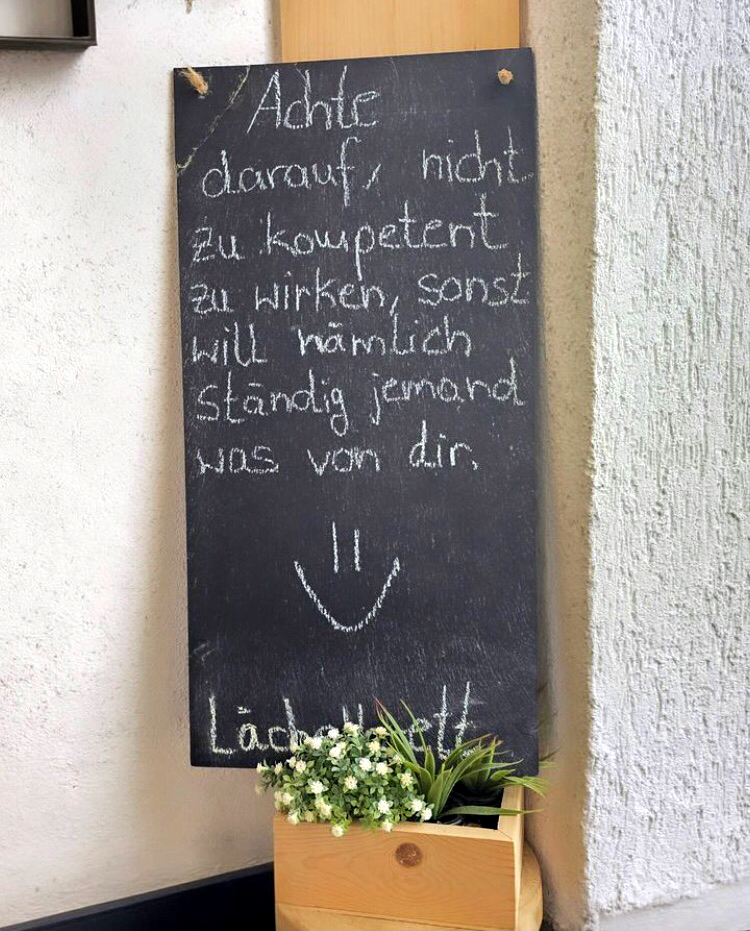 Achte
darauf, nicht
zu kompetent
zu wirken, sonst
will nämlich
Ständig jemand
was von dir.
Lächel nett